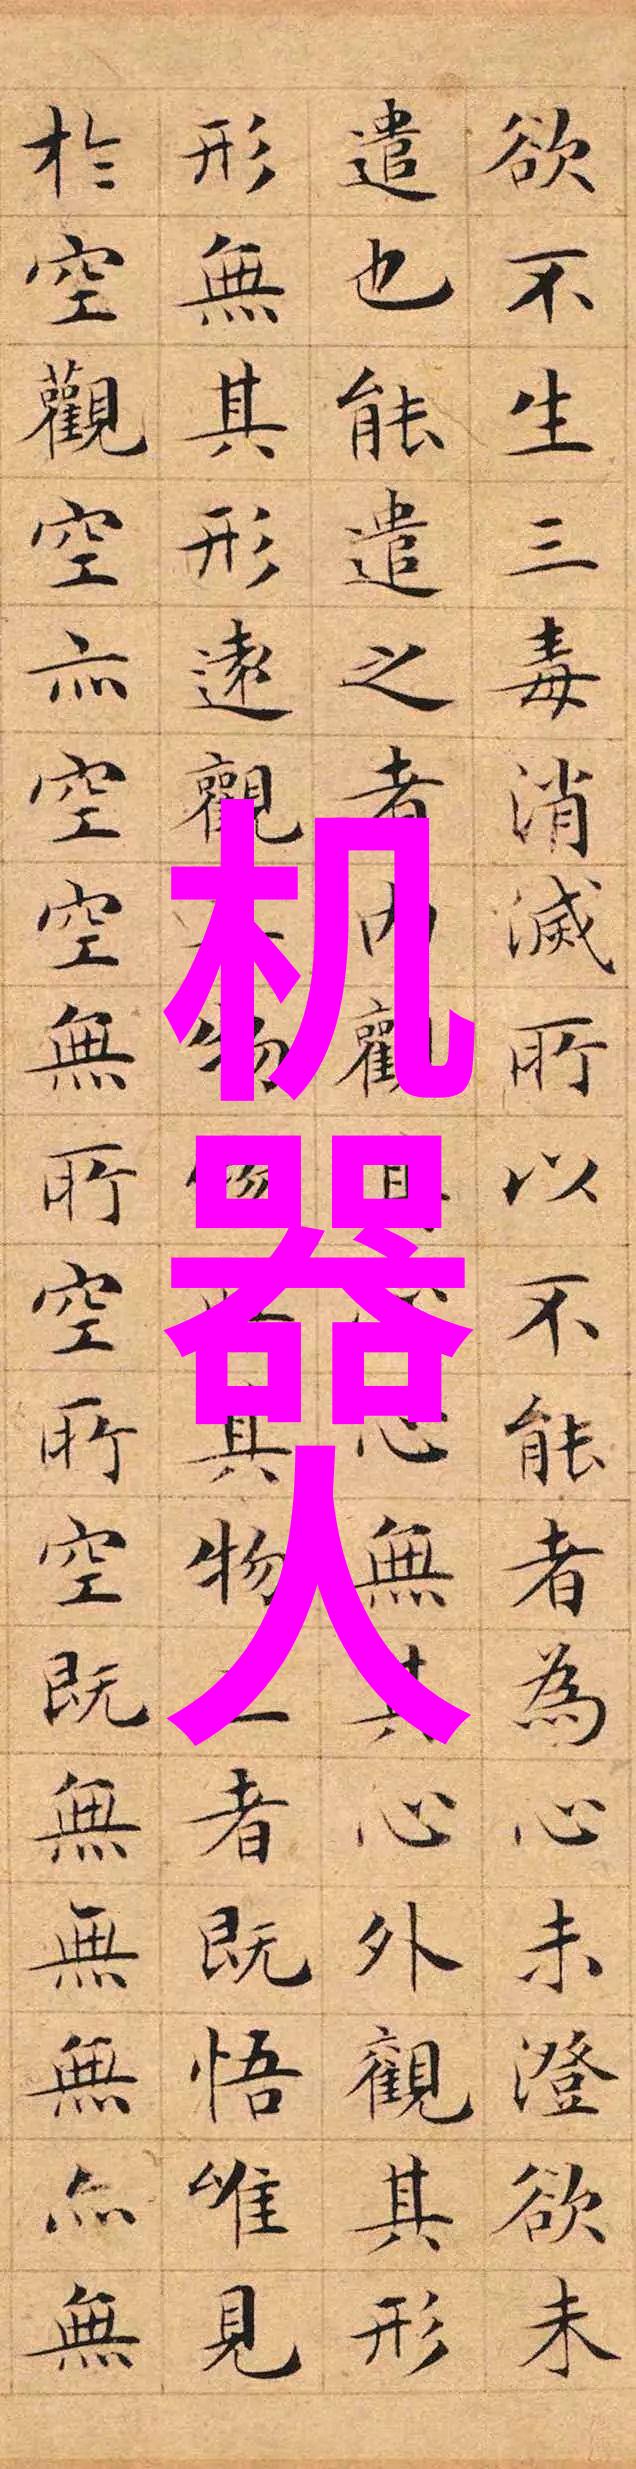 欲不生三毒消滅所以不能者為心未澄欲未
遣也能遣之者内觀心無其心外觀其形
形無其形遠觀物物其物者既悟唯見
於空觀空亦空空無所空所空既無無無亦無
机器人